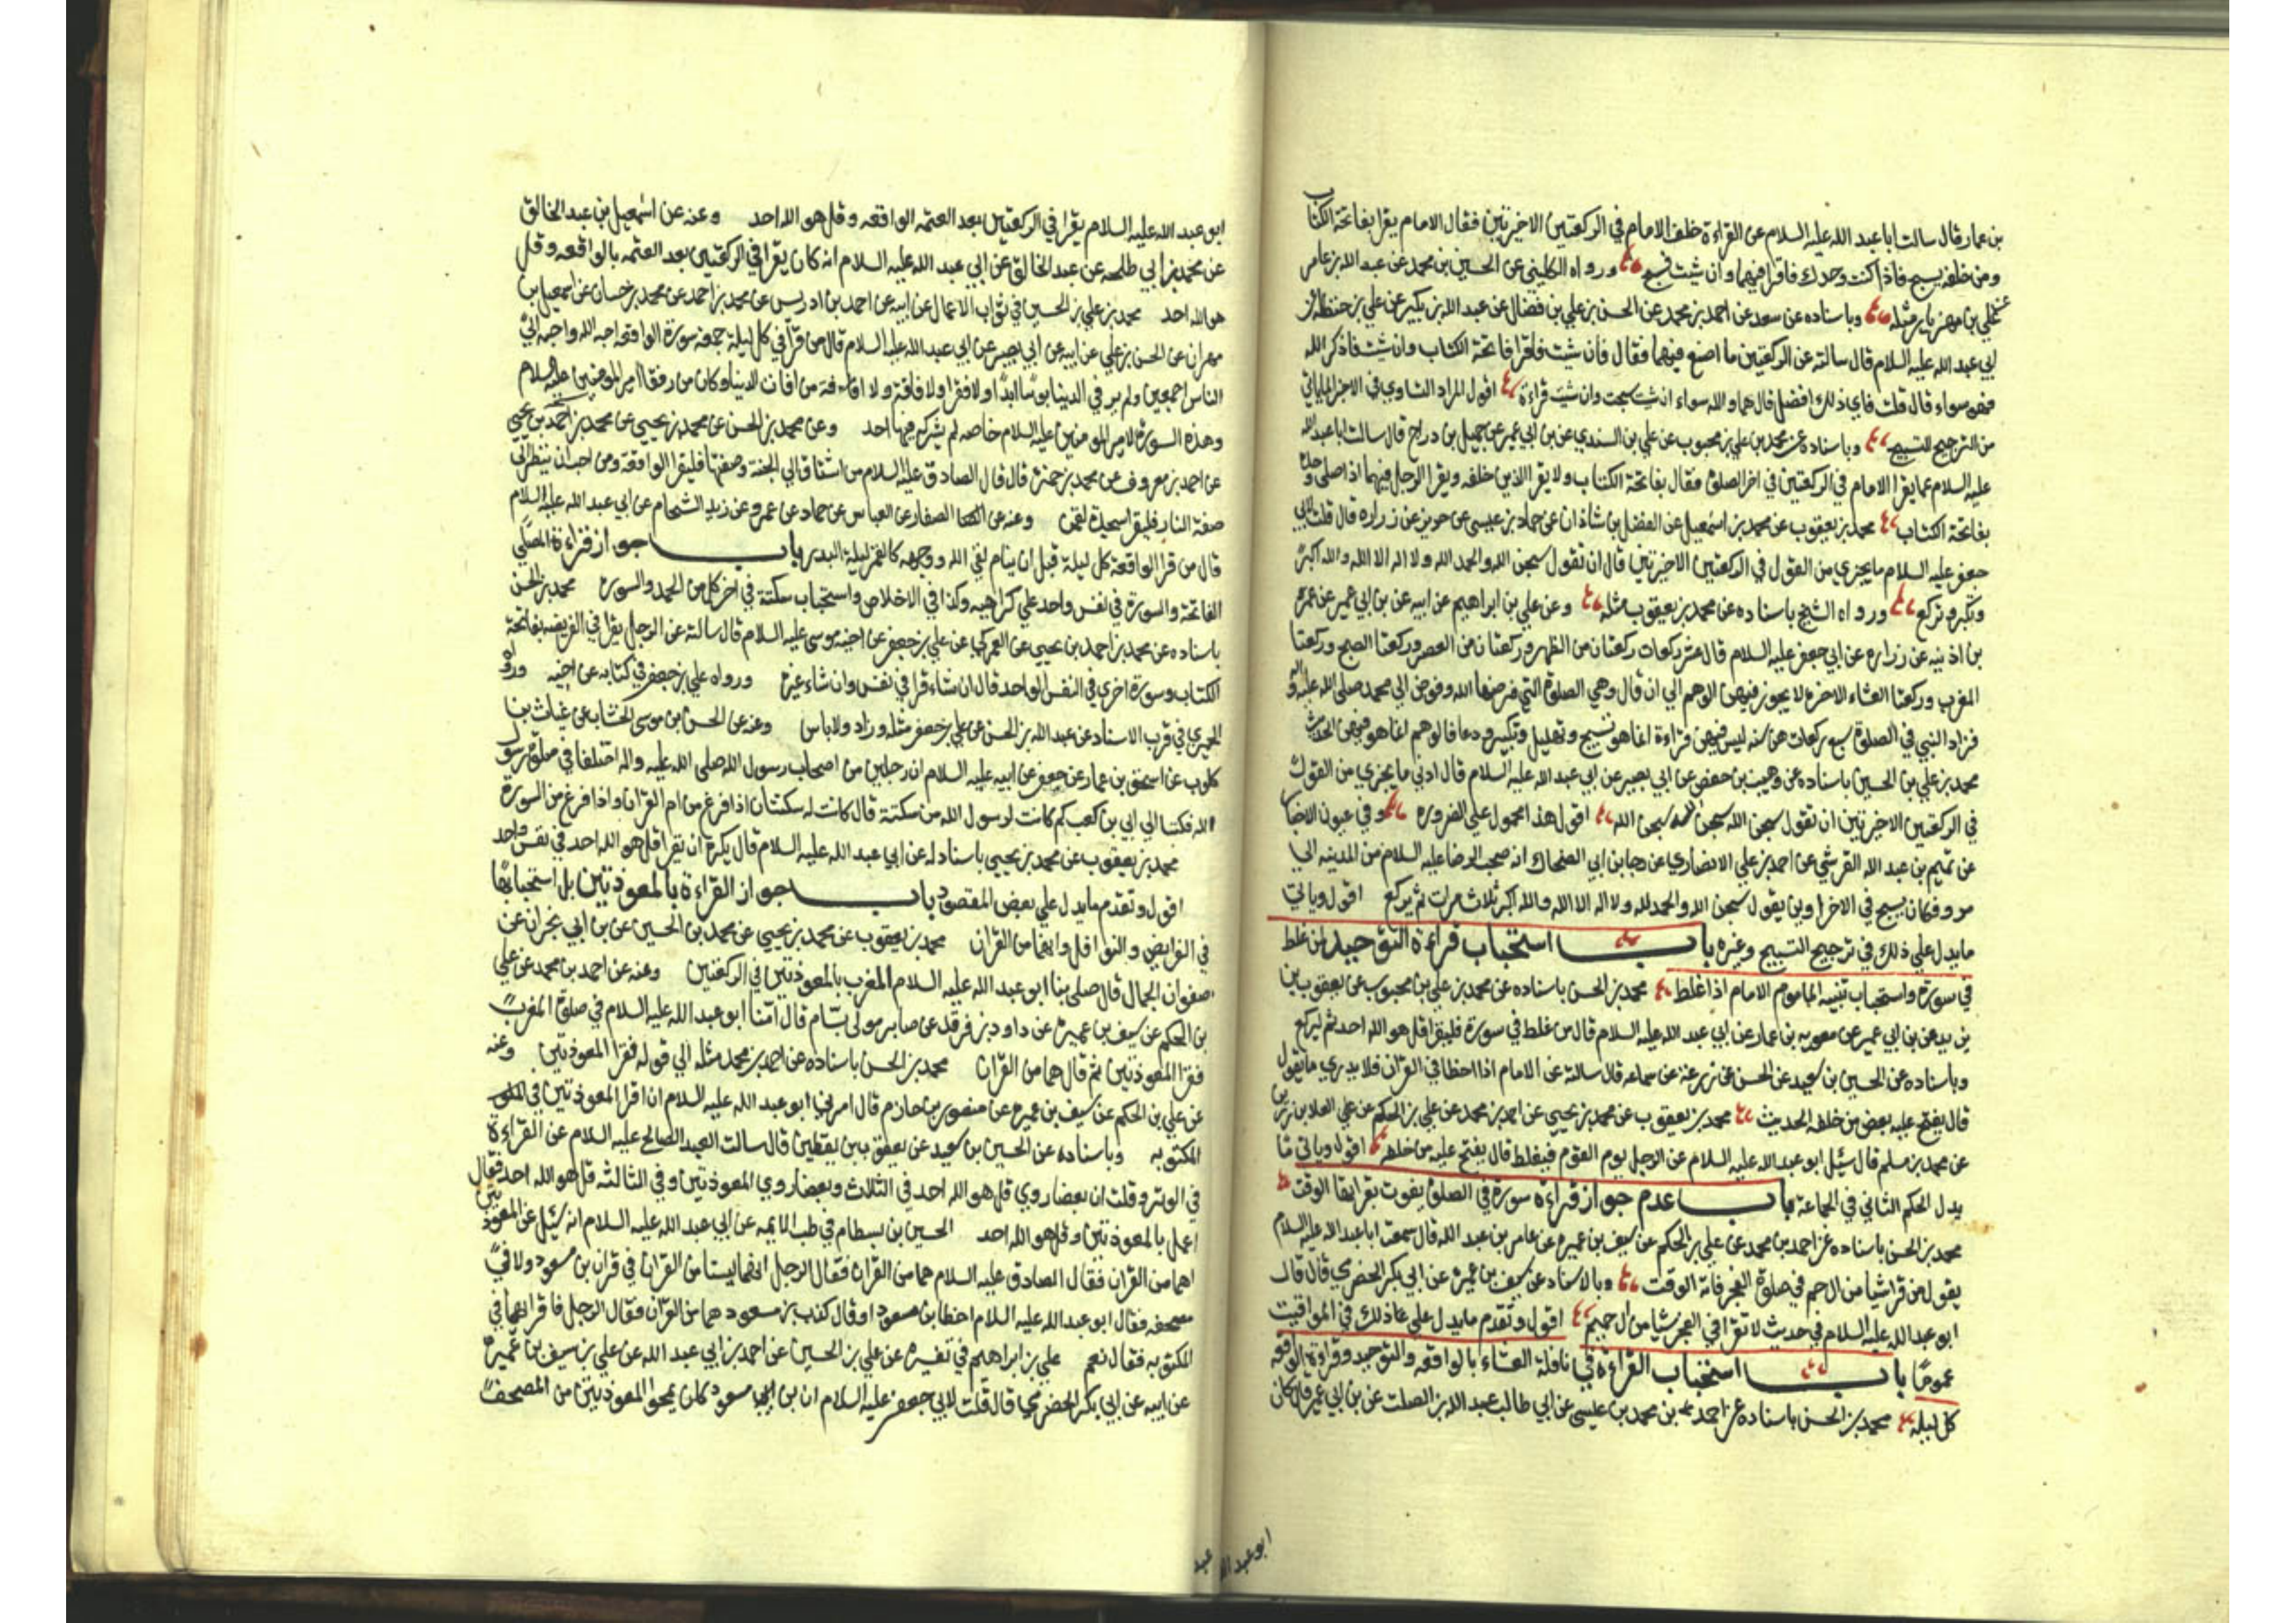 بن عمار قال سالت ابا عبد الله عليه السلام عن القراءة خلف الامام في الركعتين الاخيرتين فقال الامام يقرا بفاتحة الكتاب
ومن خلفه يسبح فاذا كنت وحدك فاقرا فيهما وان شئت فسبح ورواه الكليني عن الحسين بن محمد عن عبد الله بن عامر
عن علي بن مهزيار مثله وباسناده عن سعد عن احمد بن محمد عن الحسن بن علي بن فضال عن عبد الله بن بكير عن علي بن حنظلة عن
ابي عبد الله عليه السلام قال سالته عن الركعتين ما اصنع فيهما فقال فان شئت فاقرا فاتحة الكتاب وان شئت فاذكر الله
فهو سواء قال قلت فاي ذلك افضل قال هما والله سواء ان شئت سبحت وان شئت قراءة اقول المراد التساوي في الاجزا لما ياتي
من الترجيح للتسبيح وباسناده عن محمد بن علي بن محبوب عن علي بن السندي عن بن ابي عمير عن جميل بن دراج قال سالت ابا عبد الله
عليه السلام عما يقرا الامام في الركعتين في اخر الصلوة فقال بفاتحة الكتاب ولا يقرا الذين خلفه ويقرا الرجل فيهما اذا صلى وحده
بفاتحة الكتاب محمد بن يعقوب عن محمد بن اسمعيل عن الفضل بن شاذان عن حماد بن عيسى عن حريز عن زراره قال قلت لابي
جعفر عليه السلام ما يجزي من القول في الركعتين الاخيرتين قال ان تقول سبحن الله والحمد لله ولا اله الا الله والله اكبر
وتكبر وتركع ورواه الشيخ باسناده عن محمد بن يعقوب مثله وعن علي بن ابراهيم عن ابيه عن بن ابي عمير عن عمر
بن اذينه عن زراره عن ابي جعفر عليه السلام قال عشر ركعات ركعتان من الظهر وركعتان من العصر وركعتا الصبح وركعتا
المغرب وركعتا العشاء الاخرة لا يجوز فيهن الوهم الى ان قال وهي الصلوة التي فرضها الله وفوض الى محمد صلى الله عليه واله
فزاد النبي في الصلوة سبع ركعات هن سنه ليس فيهن قراءة انما هو تسبيح وتهليل وتكبير ودعا فالوهم انما هو فيهن الحديث
محمد بن علي بن الحسين باسناده عن وهيب بن حفص عن ابي بصير عن ابي عبد الله عليه السلام قال ادنى ما يجزي من القول
في الركعتين الاخيرتين ان تقول سبحن الله سبحن الله سبحن الله اقول هذا محمول على الضروره وفي عيون الاخبار
عن تميم بن عبد الله القرشي عن احمد بن علي الانصاري عن رجا بن ابي الضحاك انه صحب الرضا عليه السلام من المدينه الى
مرو فكان يسبح في الاخراوين يقول سبحن الله والحمد لله ولا اله الا الله والله اكبر ثلاث مرات ثم يركع اقول وياتي
ما يدل على ذلك في ترجيح التسبيح وغيره باب استحباب قراءة التوحيد لمن غلط
في سورة واستحباب تنبيه الماموم الامام اذا غلط محمد بن الحسن باسناده عن محمد بن علي بن محبوب عن يعقوب بن
يزيد عن بن ابي عمير عن معويه بن عمار عن ابي عبد الله عليه السلام قال من غلط في سورة فليقرا قل هو الله احد ثم ليركع
وباسناده عن الحسين بن سعيد عن الحسن عن زرعة عن سماعه قال سالته عن الامام اذا اخطا في القران فلا يدري ما يقول
قال يفتح عليه بعض من خلفه الحديث محمد بن يعقوب عن محمد بن يحيى عن احمد بن محمد عن علي بن الحكم عن علي العلا بن رزين
عن محمد بن مسلم قال سئل ابو عبد الله عليه السلام عن الرجل يوم القوم فيغلط قال يفتح عليه من خلفه اقول وياتي ما
يدل الحكم الثاني في الجماعة باب عدم جواز قراءة سورة في الصلوة يفوت بقرائتها الوقت
محمد بن الحسن باسناده عن احمد بن محمد عن علي بن الحكم عن سيف بن عميره عن عامر بن عبد الله قال سمعت ابا عبد الله عليه السلام
يقول من قرا شيا من ال حم في صلوة الفجر فاته الوقت وبالاسناد عن سيف بن عميرة عن ابي بكر الحضرمي قال قال
ابو عبد الله عليه السلام في حديث لا تقرا في الفجر شيا من ال حميم اقول وتقدم ما يدل على ذلك في المواقيت
عموما باب استحباب القراءة في نافلة العشاء بالواقعه والتوحيد وقراءة الواقعه
كل ليله محمد بن الحسن باسناده عن احمد بن محمد بن عيسى عن ابي طالب عبد الله بن الصلت عن بن ابي عمير قال كان
ابو عبد الله
ابو عبد الله عليه السلام يقرا في الركعتين بعد العتمه الواقعه وقل هو الله احد وعنه عن اسمعيل بن عبد الخالق
عن محمد بن ابي طلحه عن عبد الخالق عن ابي عبد الله عليه السلام انه كان يقرا في الركعتين بعد العتمه بالواقعه وقل
هو الله احد محمد بن علي بن الحسين في ثواب الاعمال عن ابيه عن احمد بن ادريس عن محمد بن احمد عن محمد بن حسان عن اسمعيل بن
مهران عن الحسن بن علي عن ابيه عن ابي بصير عن ابي عبد الله عليه السلام قال من قرا في كل ليلة جمعه سورة الواقعه احبه الله واحبه الى
الناس اجمعين ولم ير في الدنيا بوسا ابدا ولا فقرا ولا فاقة ولا افة من افات الدنيا وكان من رفقا امير المومنين عليه السلام
وهذه السورة لامير المومنين عليه السلام خاصه لم يشركه فيها احد وعن محمد بن الحسن عن محمد بن يحيى عن محمد بن احمد بن يحيى
عن احمد بن معروف عن محمد بن حمزة قال قال الصادق عليه السلام من اشتاق الى الجنة وصفتها فليقرا الواقعة ومن احب ان ينظر الى
صفة النار فليقرا سجدة لقمن وعنه عن الصفار عن العباس عن حماد عن عمرو عن زيد الشحام عن ابي عبد الله عليه السلام
قال من قرا الواقعة كل ليلة قبل ان ينام لقي الله ووجهه كالقمر ليلة البدر باب جواز قراءة المصلي
الفاتحة والسورة في نفس واحد على كراهيه وكذا في الاخلاص واستحباب سكتة في اخر كل من الحمد والسوره محمد بن الحسن
باسناده عن محمد بن احمد بن يحيى عن العمركي عن علي بن جعفر عن اخيه موسى عليه السلام قال سالته عن الرجل يقرا في الفريضه بفاتحة
الكتاب وسورة اخرى في النفس الواحد قال ان شاء قرا في نفس وان شاء غيره ورواه علي بن جعفر في كتابه عن اخيه ورواه
الحميري في قرب الاسناد عن عبد الله بن الحسن عن علي بن جعفر مثله وزاد ولا باس وعنه عن الحسن بن موسى الخشاب عن غياث بن
كلوب عن اسحق بن عمار عن جعفر عن ابيه عليه السلام ان رجلين من اصحاب رسول الله صلى الله عليه واله اختلفا في صلوة رسول
الله فكتبا الى ابي بن كعب كم كانت لرسول الله من سكتة قال كانت له سكتتان اذا فرغ من ام القران واذا فرغ من السورة
محمد بن يعقوب عن محمد بن يحيى باسناد له عن ابي عبد الله عليه السلام قال يكره ان يقرا قل هو الله احد في نفس واحد
اقول وتقدم ما يدل على بعض المقصود باب جواز القراءة بالمعوذتين بل استحبابها
في الفرايض والنوافل وانهما من القران محمد بن يعقوب عن محمد بن يحيى عن محمد بن الحسين عن بن ابي نجران عن
صفوان الجمال قال صلى بنا ابو عبد الله عليه السلام المغرب بالمعوذتين في الركعتين وعنه عن احمد بن محمد عن علي
بن الحكم عن سيف بن عميرة عن داود بن فرقد عن صابر مولى بسام قال امنا ابو عبد الله عليه السلام في صلوة المغرب
فقرا المعوذتين ثم قال هما من القران محمد بن الحسن باسناده عن احمد بن محمد مثله الى قوله فقرا المعوذتين وعنه
عن علي بن الحكم عن سيف بن عميره عن منصور بن حازم قال امرني ابو عبد الله عليه السلام ان اقرا المعوذتين في
المكتوبه وباسناده عن الحسين بن سعيد عن يعقوب بن يقطين قال سالت العبد الصالح عليه السلام عن القراءة
في الوتر وقلت ان بعضا روى قل هو الله احد في الثلاث وبعضا روى المعوذتين وفي الثالثه قل هو الله احد فقال
اعمل بالمعوذتين وقل هو الله احد الحسين بن بسطام في طب الايمه عن ابي عبد الله عليه السلام انه سئل عن المعوذتين
اهما من القران فقال الصادق عليه السلام هما من القران فقال الرجل انهما ليستا من القران في قران بن مسعود ولا في
مصحفه فقال ابو عبد الله عليه السلام اخطا بن مسعود او قال كذب بن مسعود هما من القران فقال الرجل فاقراهما في
المكتوبه فقال نعم علي بن ابراهيم في تفسيره عن علي بن الحسين عن احمد بن ابي عبد الله عن علي بن سيف بن عميرة
عن ابيه عن ابي بكر الحضرمي قال قلت لابي جعفر عليه السلام ان بن مسعود كان يمحو المعوذتين من المصحف